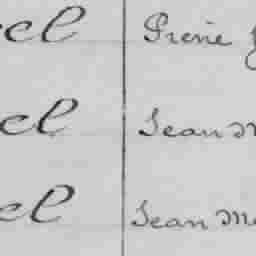 cel Irenie
cel Jean M
cel Jean Ma